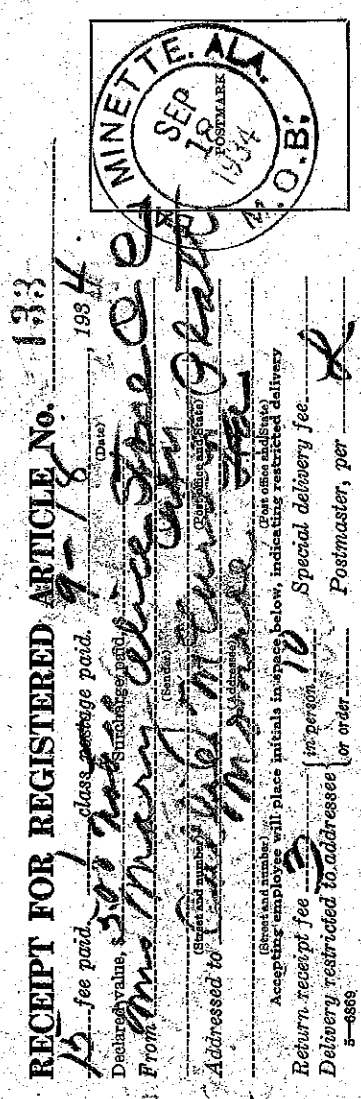 RECEIPT FOR REGISTERED ARTICLE No. 133
15 fee paid. 1 class postage paid. 9-18, 1934
(Date)
Declared value, $ 5.00 Surcharge paid, $
From Mrs Mary Alice
(Sender)
(Street and number) (Post office and State)
Addressed to
(Addressee)
(Street and number) (Post office and State)
Accepting employee will place initials in space below, indicating restricted delivery
Return receipt fee 3 Special delivery fee
Delivery restricted to addressee { in person 10
or order Postmaster, per
5—6869
MINETTE. ALA.
SEP
18
POSTMARK
1934
M.O.B.